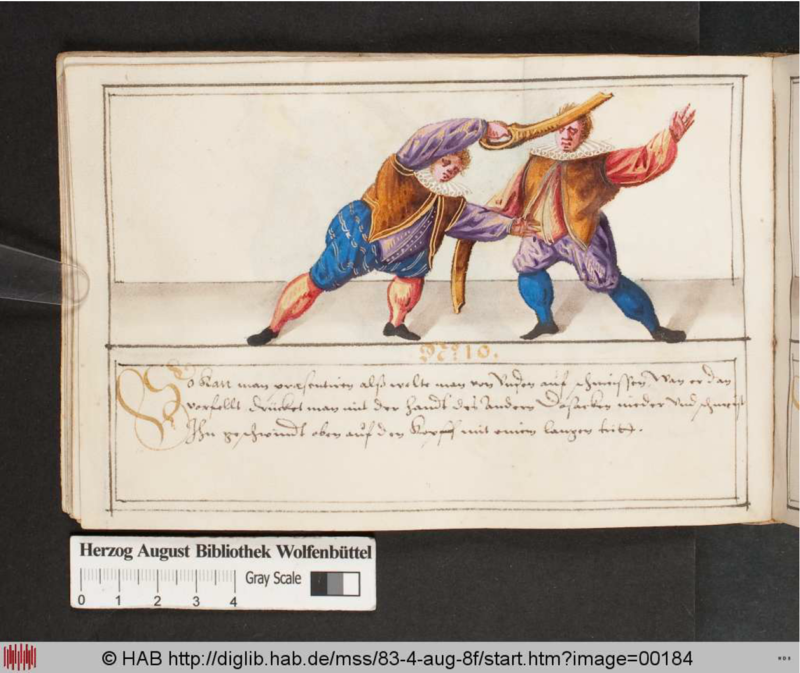 N̊: 10.
So Kan man præsentiren alß wolte man von Unden auf schmeissen, Wan er dan
vorfellt, drücket man mit der handt des andern Dusacken nieder Und schmeist
Ihn geschwindt oben auf den Kopff mit einem langen tritt.
Herzog August Bibliothek Wolfenbüttel
0 1 2 3 4 Gray Scale
© HAB http://diglib.hab.de/mss/83-4-aug-8f/start.htm?image=00184